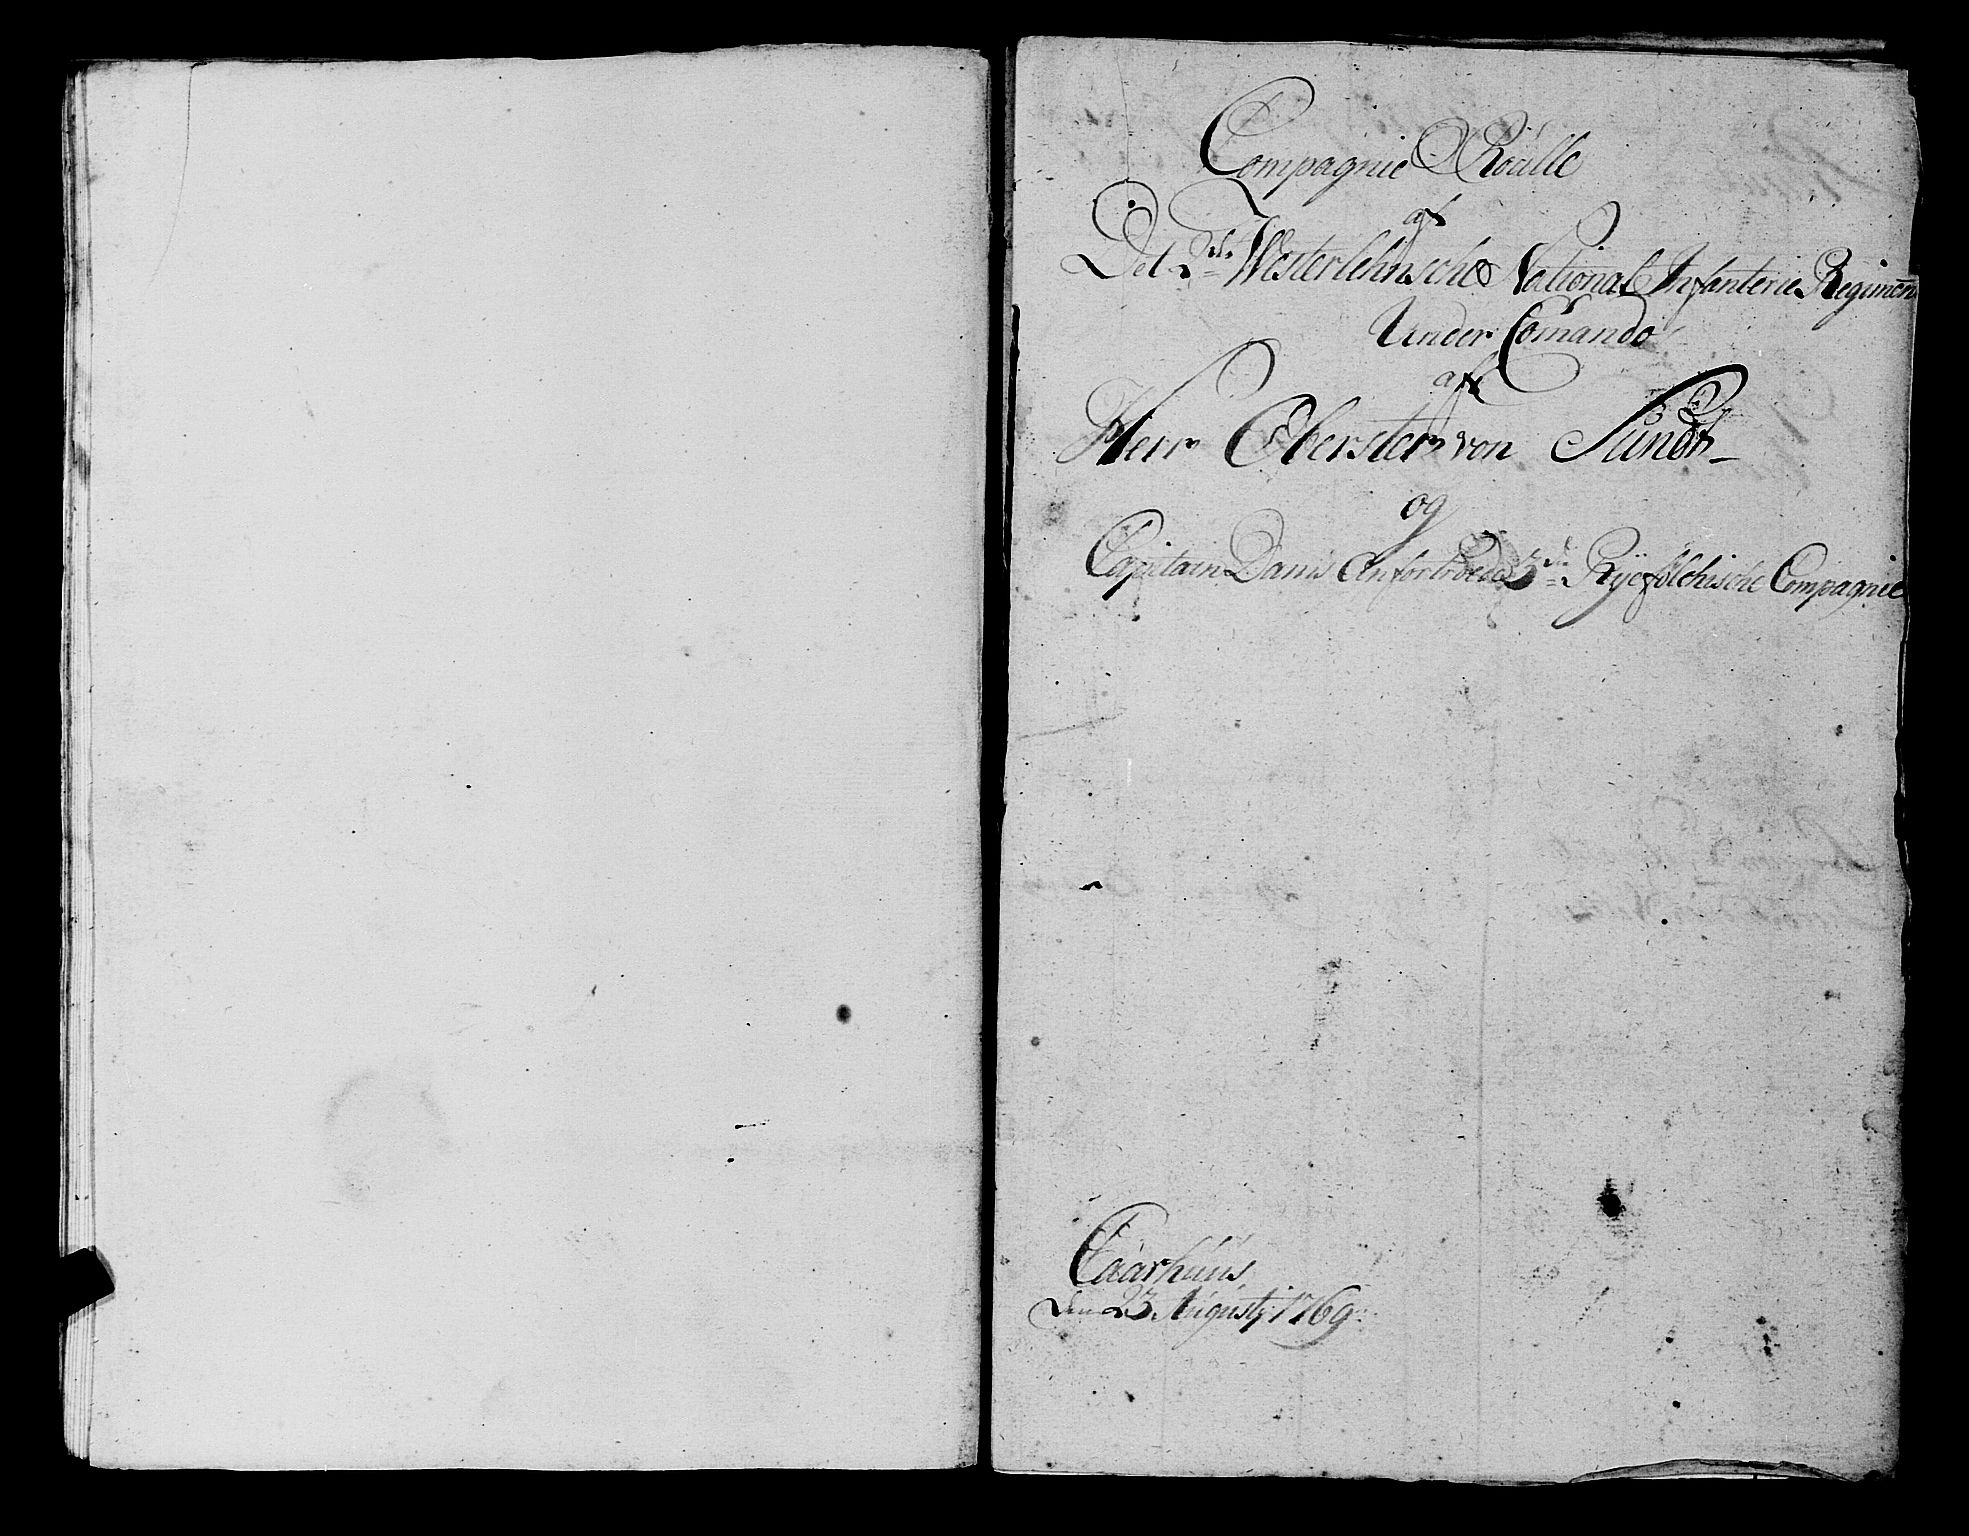 Compagnie Roulle
af
Det 2de Westerlehnsche National Infanterie Regiment
Under Comando
af
Herr Obersten von Sundt
og
Capitain Dams Anfortroede 3de Ryefÿlchische Compagnie
Aarhuus
den 23 Augustj: 1769